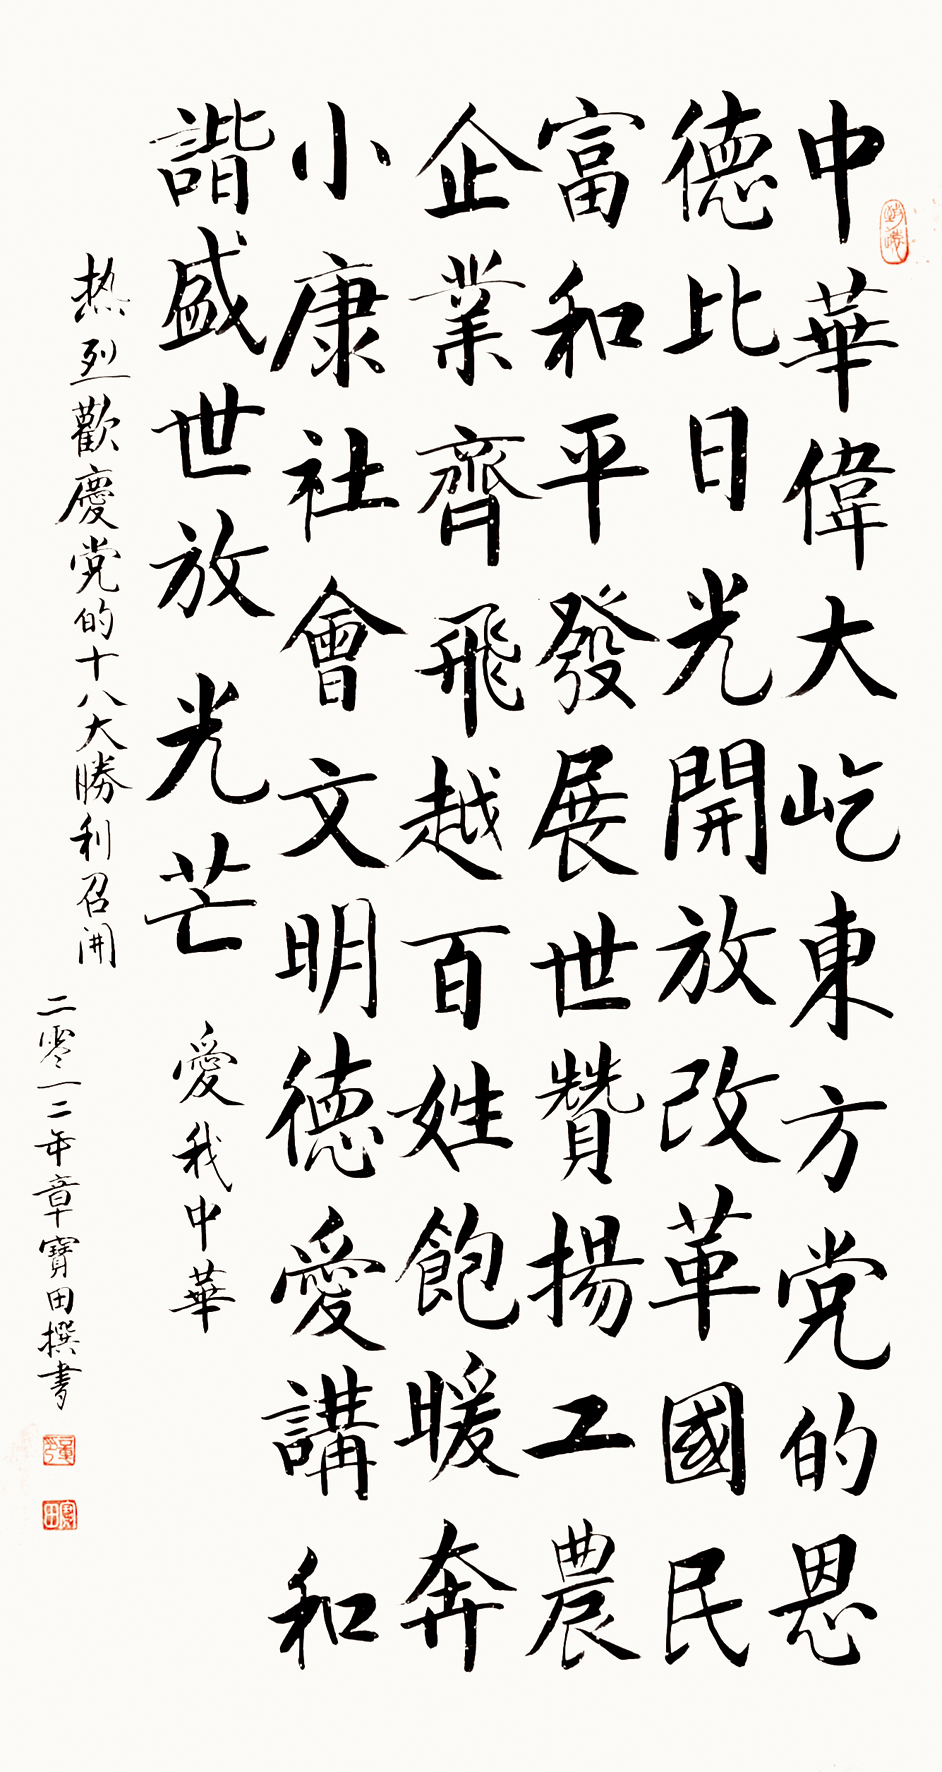 中華偉大屹東方党的恩
德比日光開放改革國民
富和平發展世贊揚工農
企業齊飛越百姓飽暖奔
小康社會文明德愛講和
諧盛世放光芒 愛我中華
热烈歡慶党的十八大勝利召開
二零一二年章寶田撰書
寶田